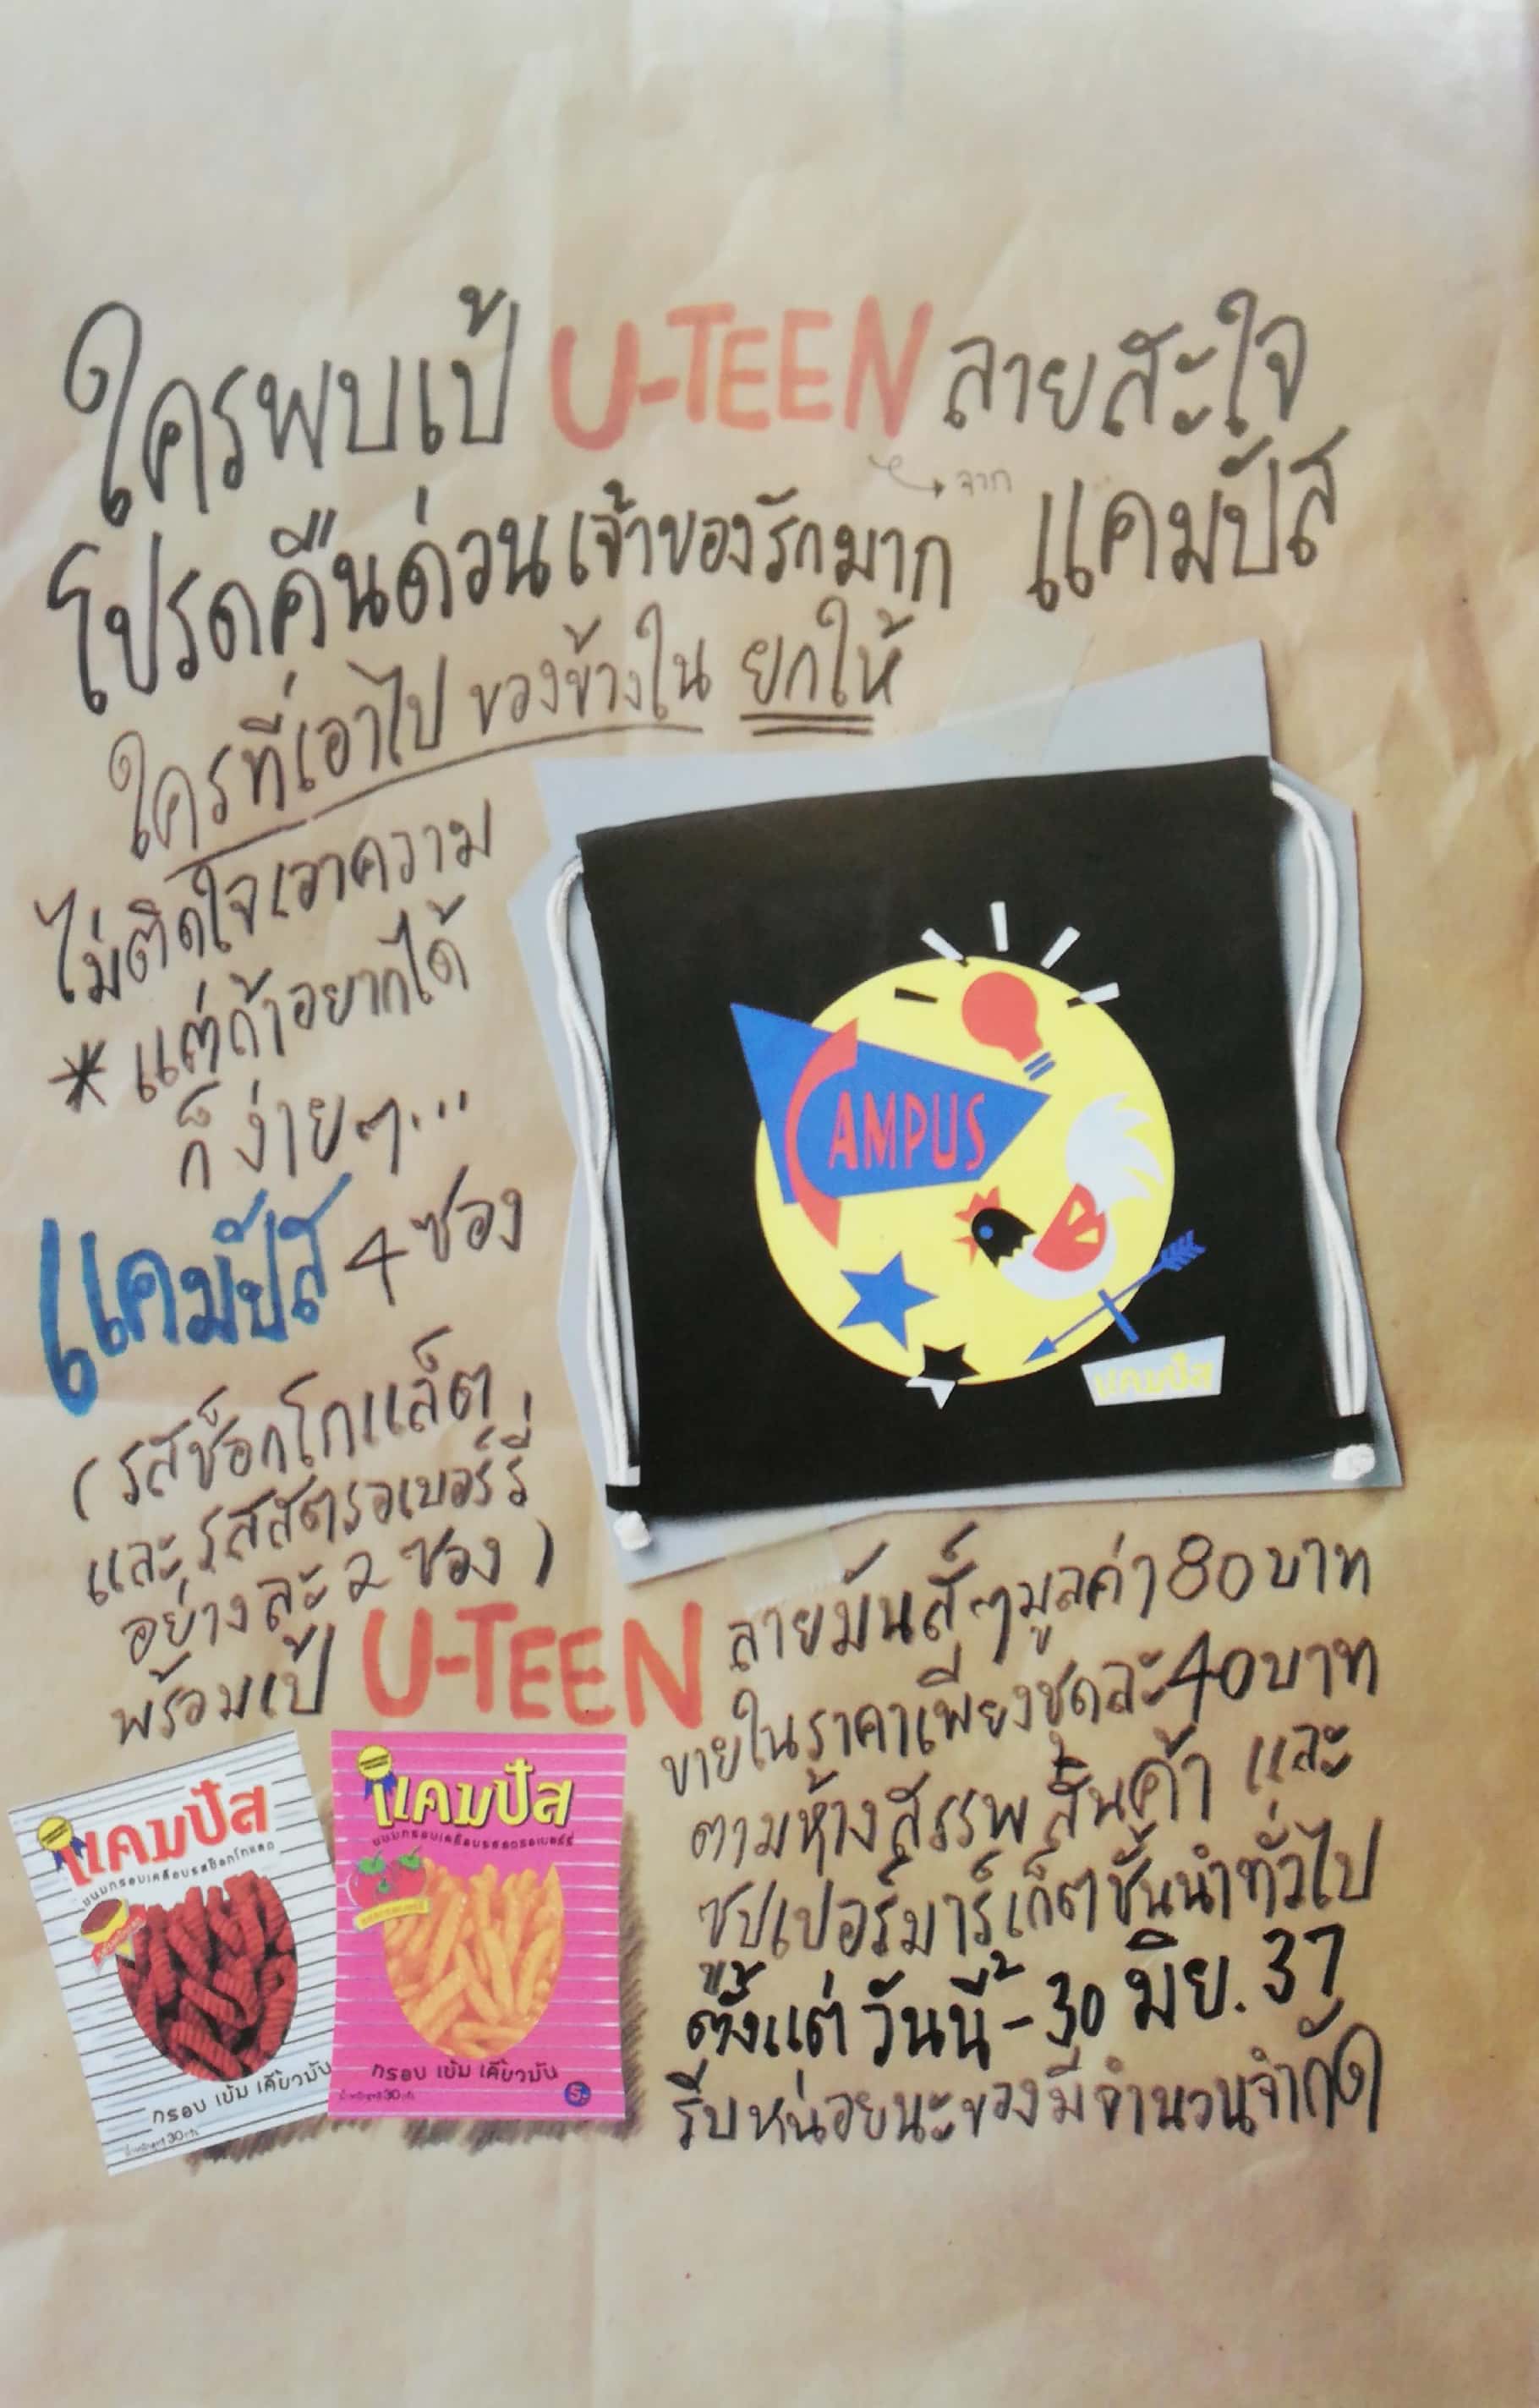 ใครพบเป้ U-TEEN ลายสะใจ
จาก แคมปัส
โปรดคืนด่วนเจ้าของรักมาก
ใครที่เอาไป ของข้างใน ยกให้
ไม่ติดใจเอาความ
* แต่ถ้าอยากได้
ก็ง่ายๆ...
แคมปัส 4 ซอง
(รสช็อกโกแล็ต
และรสสตรอเบอร์รี่
อย่างละ 2 ซอง)
พร้อมเป้ U-TEEN ลายมันส์ๆมูลค่า 80 บาท
ขายในราคาเพียงชุดละ 40 บาท
ตามห้างสรรพสินค้า และ
ซูปเปอร์มาร์เก็ตชั้นนำทั่วไป
ตั้งแต่ วันนี้ - 30 มิย. 37
รีบหน่อยนะของมีจำนวนจำกัด
CAMPUS
แคมปัส
แคมปัส
ขนมกรอบเคลือบรสช็อกโกแลต
กรอบ เข้ม เคี้ยวมัน
แคมปัส
ขนมกรอบเคลือบรสสตรอเบอร์รี่
กรอบ เข้ม เคี้ยวมัน